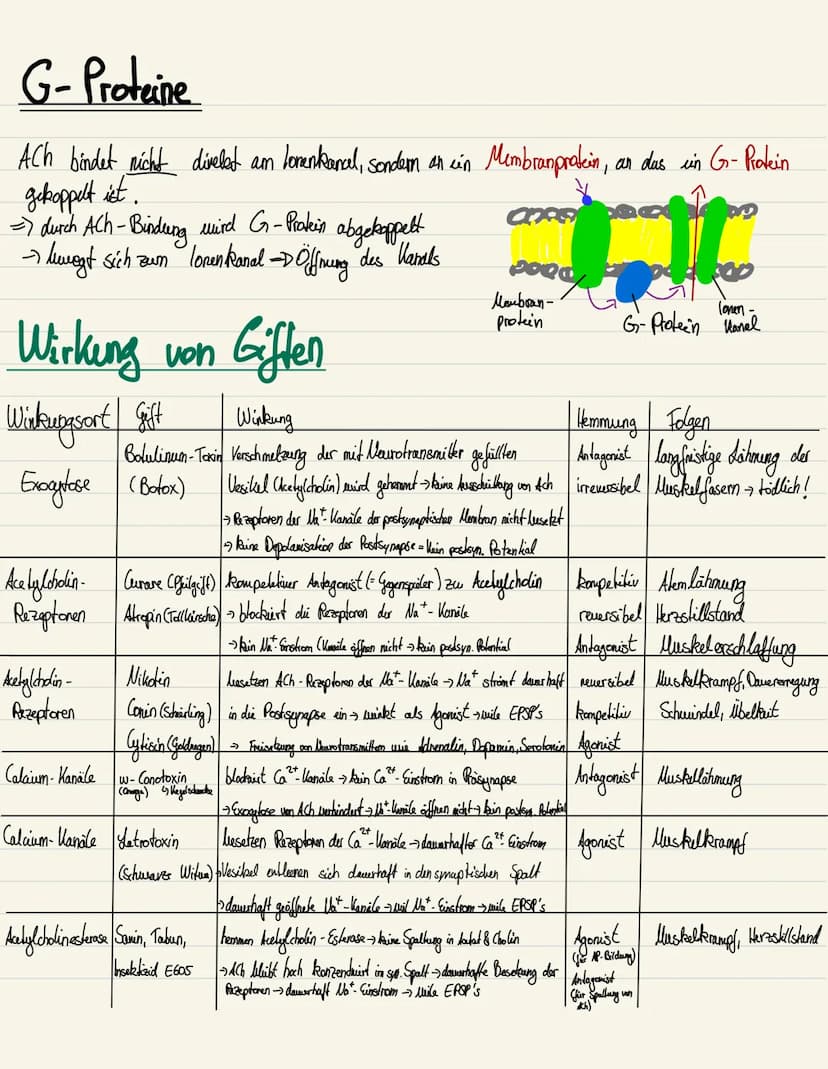 G-Proteine
ACh bindet nicht direkt am Ionenkanal, sondern an ein Membranprotein, an das ein G-Protein
gekoppelt ist.
=> durch ACh-Bindung wird G-Protein abgekoppelt
-> bewegt sich zum Ionenkanal -> Öffnung des Kanals
Membran-
protein
G-Protein
Ionen-
kanal
Wirkung von Giften
Wirkungsort
Gift
Wirkung
Hemmung
Folgen
Exozytose
Botulinum-Toxin
(Botox)
Verschmelzung der mit Neurotransmitter gefüllten
Vesikel (Acetylcholin) wird gehemmt -> keine Ausschüttung von ACh
-> Rezeptoren der Na⁺-Kanäle der postsynaptischen Membran nicht besetzt
-> keine Depolarisation der Postsynapse = kein postsyn. Potential
Antagonist
irreversibel
langfristige Lähmung der
Muskelfasern -> tödlich!
Acetylcholin-
Rezeptoren
Curare (Pfeilgift)
Atropin (Tollkirsche)
kompetitiver Antagonist (= Gegenspieler) zu Acetylcholin
-> blockiert die Rezeptoren der Na⁺-Kanäle
-> kein Na⁺-Einstrom (Kanäle öffnen nicht -> kein postsyn. Potential
kompetitiv
reversibel
Antagonist
Atemlähmung
Herzstillstand
Muskelerschlaffung
Acetylcholin-
Rezeptoren
Nikotin
Coniin (Schierling)
Cytisin (Goldregen)
besetzen ACh-Rezeptoren der Na⁺-Kanäle -> Na⁺ strömt dauerhaft
in die Postsynapse ein -> wirkt als Agonist -> viele EPSP's
-> Freisetzung von Neurotransmittern wie Adrenalin, Dopamin, Serotonin
reversibel
kompetitiv
Agonist
Muskelkrampf, Dauererregung
Schwindel, Übelkeit
Calcium-Kanäle
w-Conotoxin
(Omega) ↳ Kegelschnecke
blockiert Ca²⁺-Kanäle -> kein Ca²⁺-Einstrom in Präsynapse
-> Exozytose von ACh verhindert -> Na⁺-Kanäle öffnen nicht -> kein postsyn. Potential
Antagonist
Muskellähmung
Calcium-Kanäle
Latrotoxin
(Schwarze Witwe)
besetzen Rezeptoren der Ca²⁺-Kanäle -> dauerhafter Ca²⁺ Einstrom
-> Vesikel entleeren sich dauerhaft in den synaptischen Spalt
-> dauerhaft geöffnete Na⁺-Kanäle -> viel Na⁺-Einstrom -> viele EPSP's
Agonist
Muskelkrampf
Acetylcholinesterase
Sarin, Tabun,
Insektizid E605
hemmen Acetylcholin-Esterase -> keine Spaltung in Acetat & Cholin
-> ACh bleibt hoch konzentriert im syn. Spalt -> dauerhafte Besetzung der
Rezeptoren -> dauerhaft Na⁺-Einstrom -> viele EPSP's
Agonist
(für AP-Bildung)
Antagonist
(für Spaltung von
ACh)
Muskelkrampf, Herzstillstand